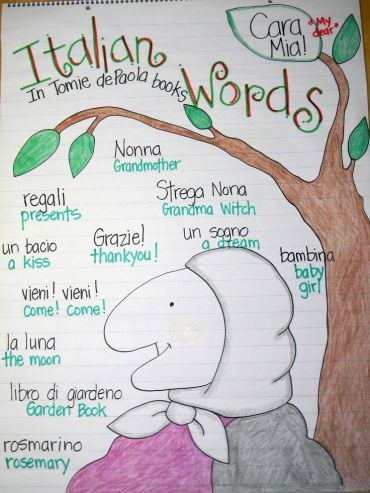 Italian
In Tomie dePaola books
Words
Cara
Mia!
"My
dear"
Nonna
Grandmother
regali
presents
Strega Nona
Grandma Witch
un bacio
a kiss
Grazie!
thankyou!
un sogno
a dream
bambina
baby
girl
vieni! vieni!
come! come!
la luna
the moon
libro di giardeno
Garden Book
rosmarino
rosemary